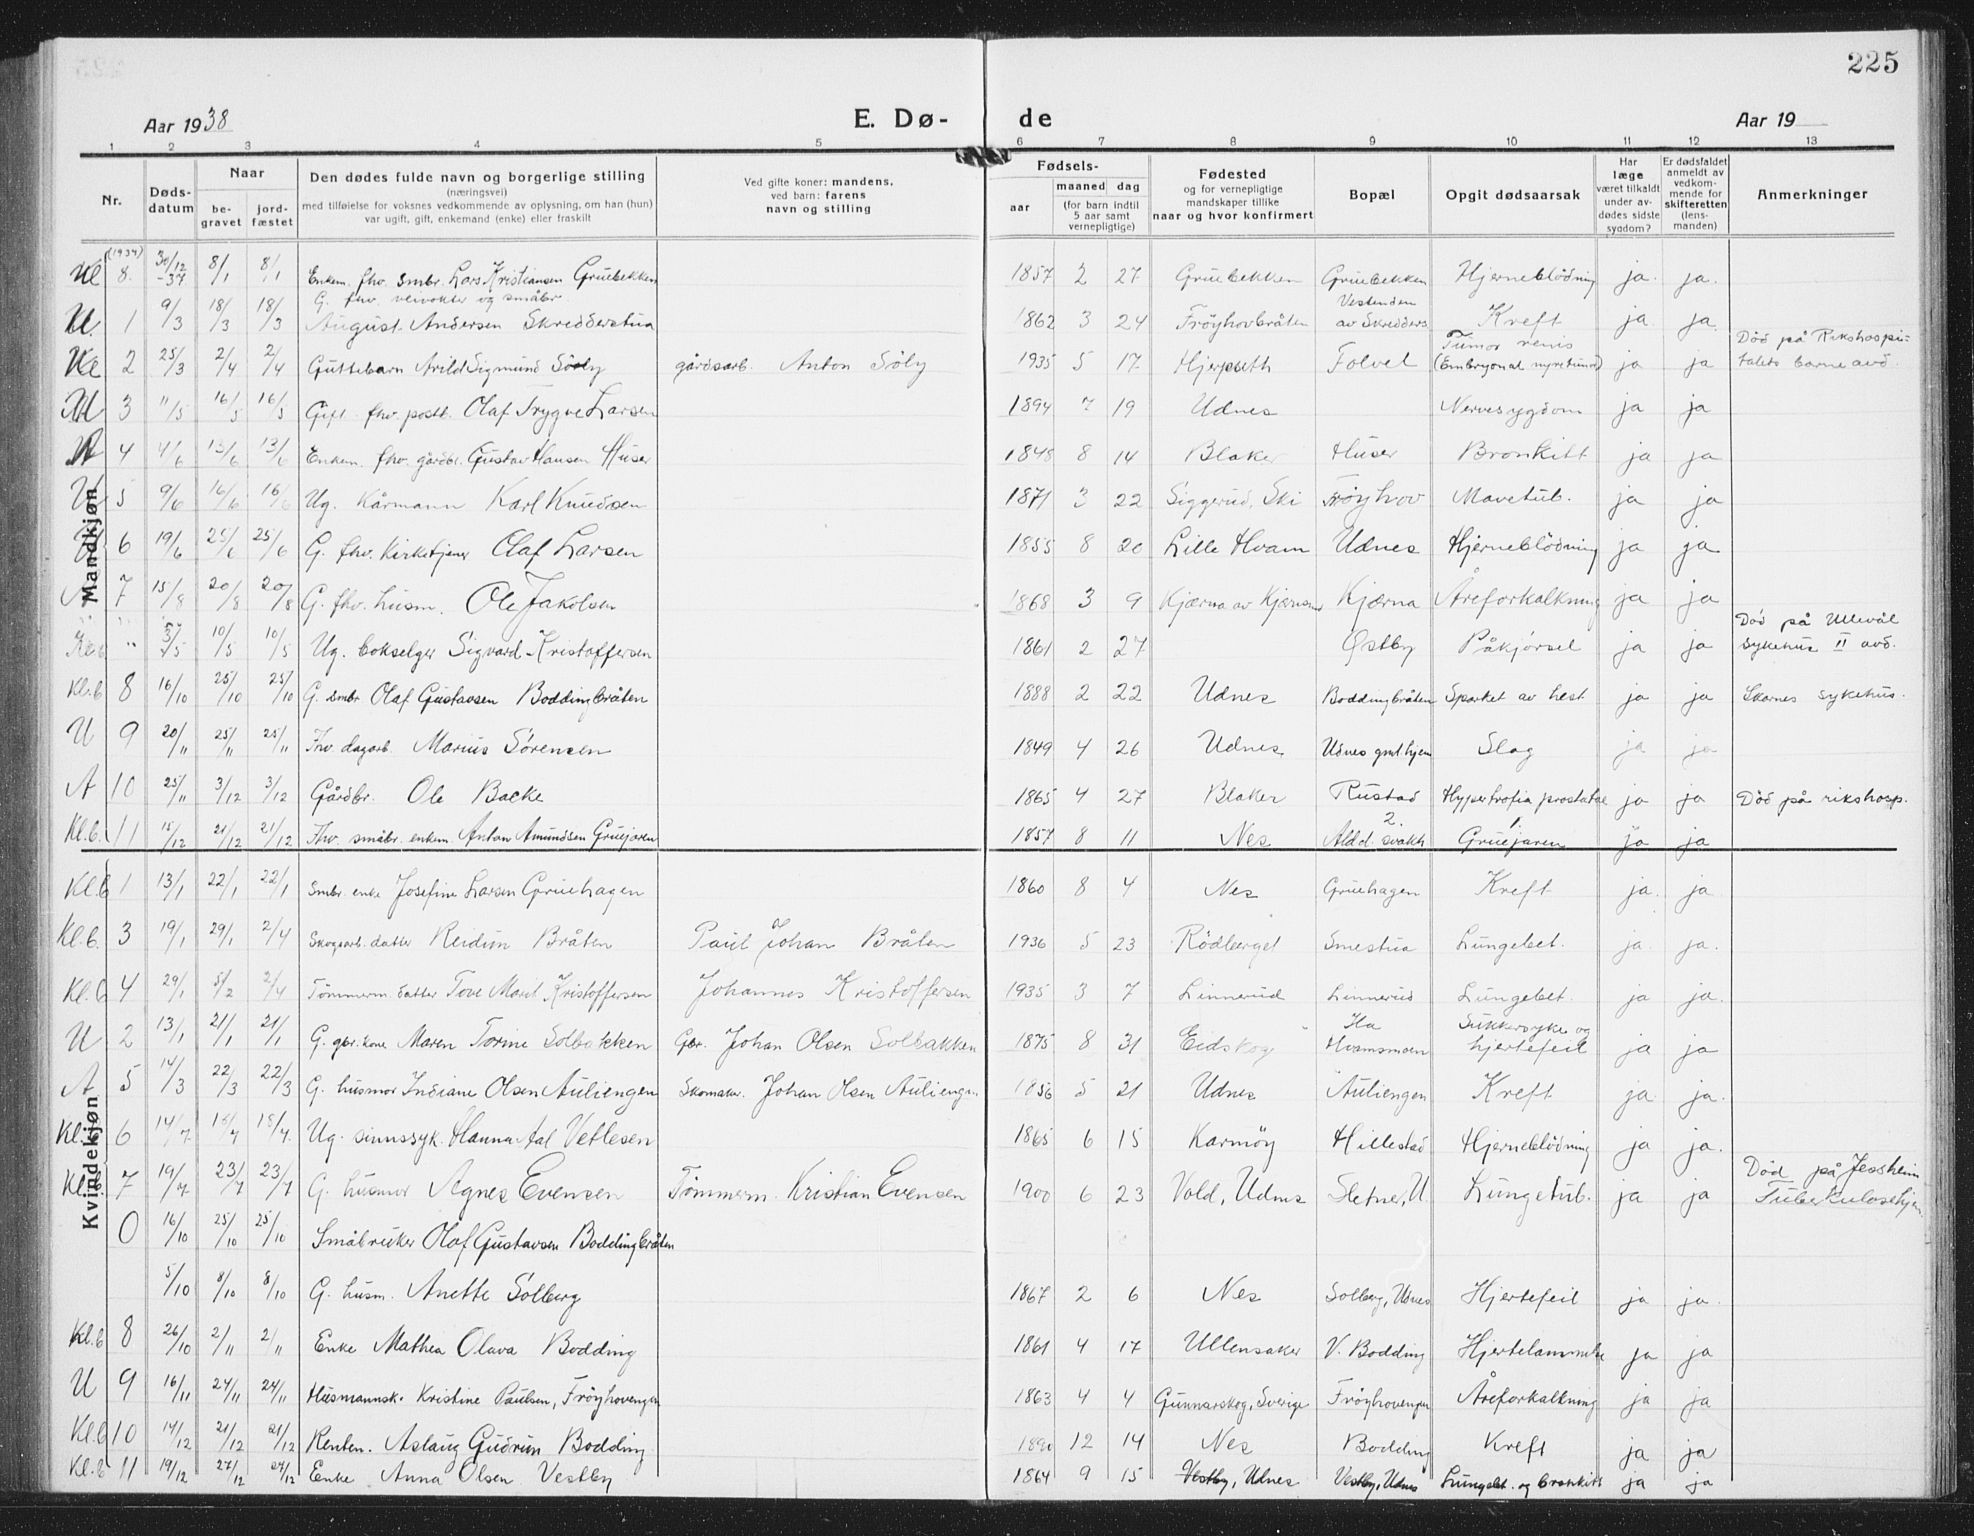 225
Aar 1938 E. Dø- de Aar 19
1 2 3 4 5 6 7 8 9 10 11 12 13
Nr. Døds-datum Naar be-gravet jord-fæstet Den dødes fulde navn og borgerlige stilling (næringsvei) med tilføielse for voksnes vedkommende av oplysning, om han (hun) var ugift, gift, enkemand (enke) eller fraskilt Ved gifte koner: mandens, ved barn: farens navn og stilling Fødsels- aar maaned dag (for barn indtil 5 aar samt vernepligtige) Fødested og for vernepligtige mandskaper tillike naar og hvor konfirmert Bopæl Opgit dødsaarsak Har læge været tilkaldt under av-dødes sidste sygdom? Er dødsfaldet anmeldt av vedkom-mende for skifteretten (lens-manden) Anmerkninger
Mandkjøn
(1937)
8. 30/12 -37 8/1 8/1 Enkem. fhv. smbr. Lars Kristiansen Gruebekken 1857 2 27 Gruebekken Gruebekken Hjerneblödning ja. ja.
U. 1 9/3 18/3 18/3 G. fhv. veivokter og småbr. August Andersen Skredderstua 1862 3 24 Fröyhovbråten Vestenden av Skredders. Kreft ja ja.
2 25/3 2/4 2/4 Guttebarn Arild Sigmund Söly gårdsarb. Anton Söly 1935 5 17 Hjerpseth Folvel Tumor renis (Embryonal nyretumor) ja ja Död på Rikshospi-talets barneavd.
3 11/5 16/5 16/5 Gift fhv. postb. Olaf Trygve Larsen 1894 7 19 Udnes Nervesygdom ja ja
4 4/6 13/6 13/6 Enkem. fhv. gårdbr. Gustav Hansen Huser 1848 8 14 Blaker Huser Bronkitt ja ja
5 9/6 16/6 16/6 Ug. kårmann Karl Knudsen 1871 3 22 Siggerud, Ski Fröyhov Mavetub. ja ja
6 19/6 25/6 25/6 G. fhv. Kirketjener Olaf Larsen 1855 8 20 Lille Hvam Udnes Hjerneblödning ja ja
7 15/8 20/8 20/8 G. fhv. husm. Ole Jakobsen 1868 3 9 Kjærna av Kjærnsmo Kjærna Åreforkalkning ja ja
" 3/5 10/5 10/5 Ug. bokselger Sigvard Kristoffersen 1861 2 27 Östby Påkjörsel ja ja Död på Ullevål sykehus II avd.
Kl.b 8 16/10 25/10 25/10 G. smbr Olaf Gustavsen Boddingbråten 1888 2 22 Udnes Boddingbråten Sparket av hest ja ja Skarnes sykehus.
U 9 20/11 25/11 25/11 Fhv. dagarb. Marius Sörensen 1849 4 26 Udnes Udnes gmlhjem Slag ja ja
A 10 25/11 3/12 3/12 Gårdbr. Ole Backe 1865 4 27 Blaker Rustad Hypertrofia prostatae ja ja Död på rikshosp.
Kl.b. 11 15/12 21/12 21/12 Fhv. småbr. enkem. Anton Amundsen Gruejaren 1857 8 11 Nes 2. Aldd. svakh 1. Gruejaren ja ja
Kvindekjøn
Kl.b 1 13/1 22/1 22/1 Smbr. enke Josefine Larsen Gruehagen 1860 8 4 Nes Gruehagen Kreft ja. ja
Kl.b. 3 19/1 29/1 2/4 Skogsarb. datter Reidun Bråten Paul Johan Bråten 1936 5 23 Rödberget Smestua Lungebet. ja. ja.
Kl.b 4 29/1 5/2 2/4 Tömmerm. datter Tove Marit Kristoffersen Johannes Kristoffersen 1935 3 7 Linnerud Linnerud Lungebet. ja ja.
U 2 13/1 21/1 21/1 G. gbr. kone Maren Torine Solbakken Gbr. Johan Olsen Solbakken 1875 8 31 Eidskog Hvamsmoen Sukkersyke og hjertefeil ja ja
A 5 14/3 22/3 22/3 G. husmor Indiane Olsen Auliengen Skomaker. Johan Olsen Auliengen 1856 5 21 Udnes Auliengen Kreft ja ja.
Kl.b. 6 14/7 18/7 18/7. Ug. sinnssyk. Hanna Aal Vetlesen 1865 6 15 Karmöy Hillestad Hjerneblödning ja ja.
Kl.b. 7 19/7 23/7 23/7 G. husmor Agnes Evensen Tömmerm. Kristian Evensen 1900 6 23 Vold, Udnes Sletner, U Lungetub. ja ja Död på Jessheim Tuberkulosehjem
0 16/10 25/10 25/10 Småbruker Olaf Gustavsen Boddingbråten
5/10 8/10 8/10 G. husm. Anette Solberg 1867 2 6 Nes Solberg, Udnes Hjertefeil ja ja.
Kl.b 8 26/10 2/11 2/11 Enke Mathea Olava Bodding 1861 4 17 Ullensaker V. Bodding Hjertelammelse ja ja
U 9 16/11 24/11 24/11 Husmannsk. Kristine Paulsen, Fröyhovengen 1863 4 4 Gunnarskog, Sverige Fröyhovengen Åreforkalkning ja ja
Kl.b 10 14/12 21/12 21/12 Renten. Aslaug Gudrun Bodding 1890 12 14 Nes Bodding Kreft ja ja
Kl.b 11 19/12 27/12 27/12 Enke Anna Olsen Vestby 1864 9 15 Vestby, Udnes Vestby, Udnes Lungebet. og bronkitt ja ja